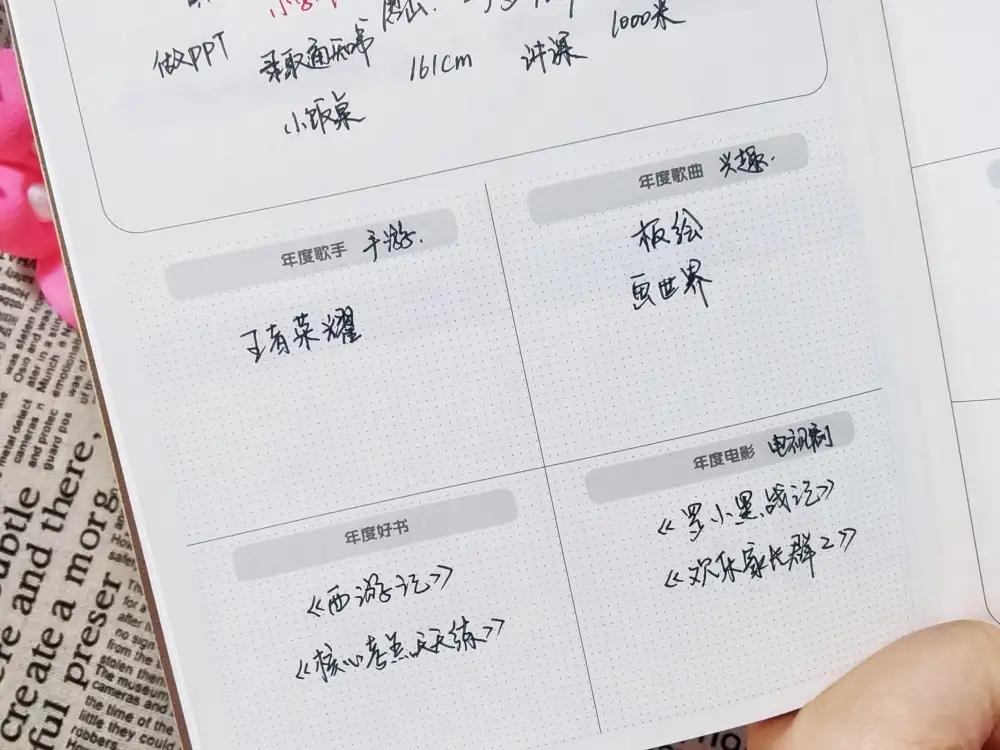 做PPT 录取通知书 161cm 讲课 1000米
小饭桌
年度歌手 手游.
王者荣耀
年度歌曲 兴趣.
板绘
画世界
年度好书
《西游记》
《核心考点天天练》
年度电影 电视剧
《罗小黑战记》
《欢乐家长群2》
subtle
ere and there,
create a morg
ful preser